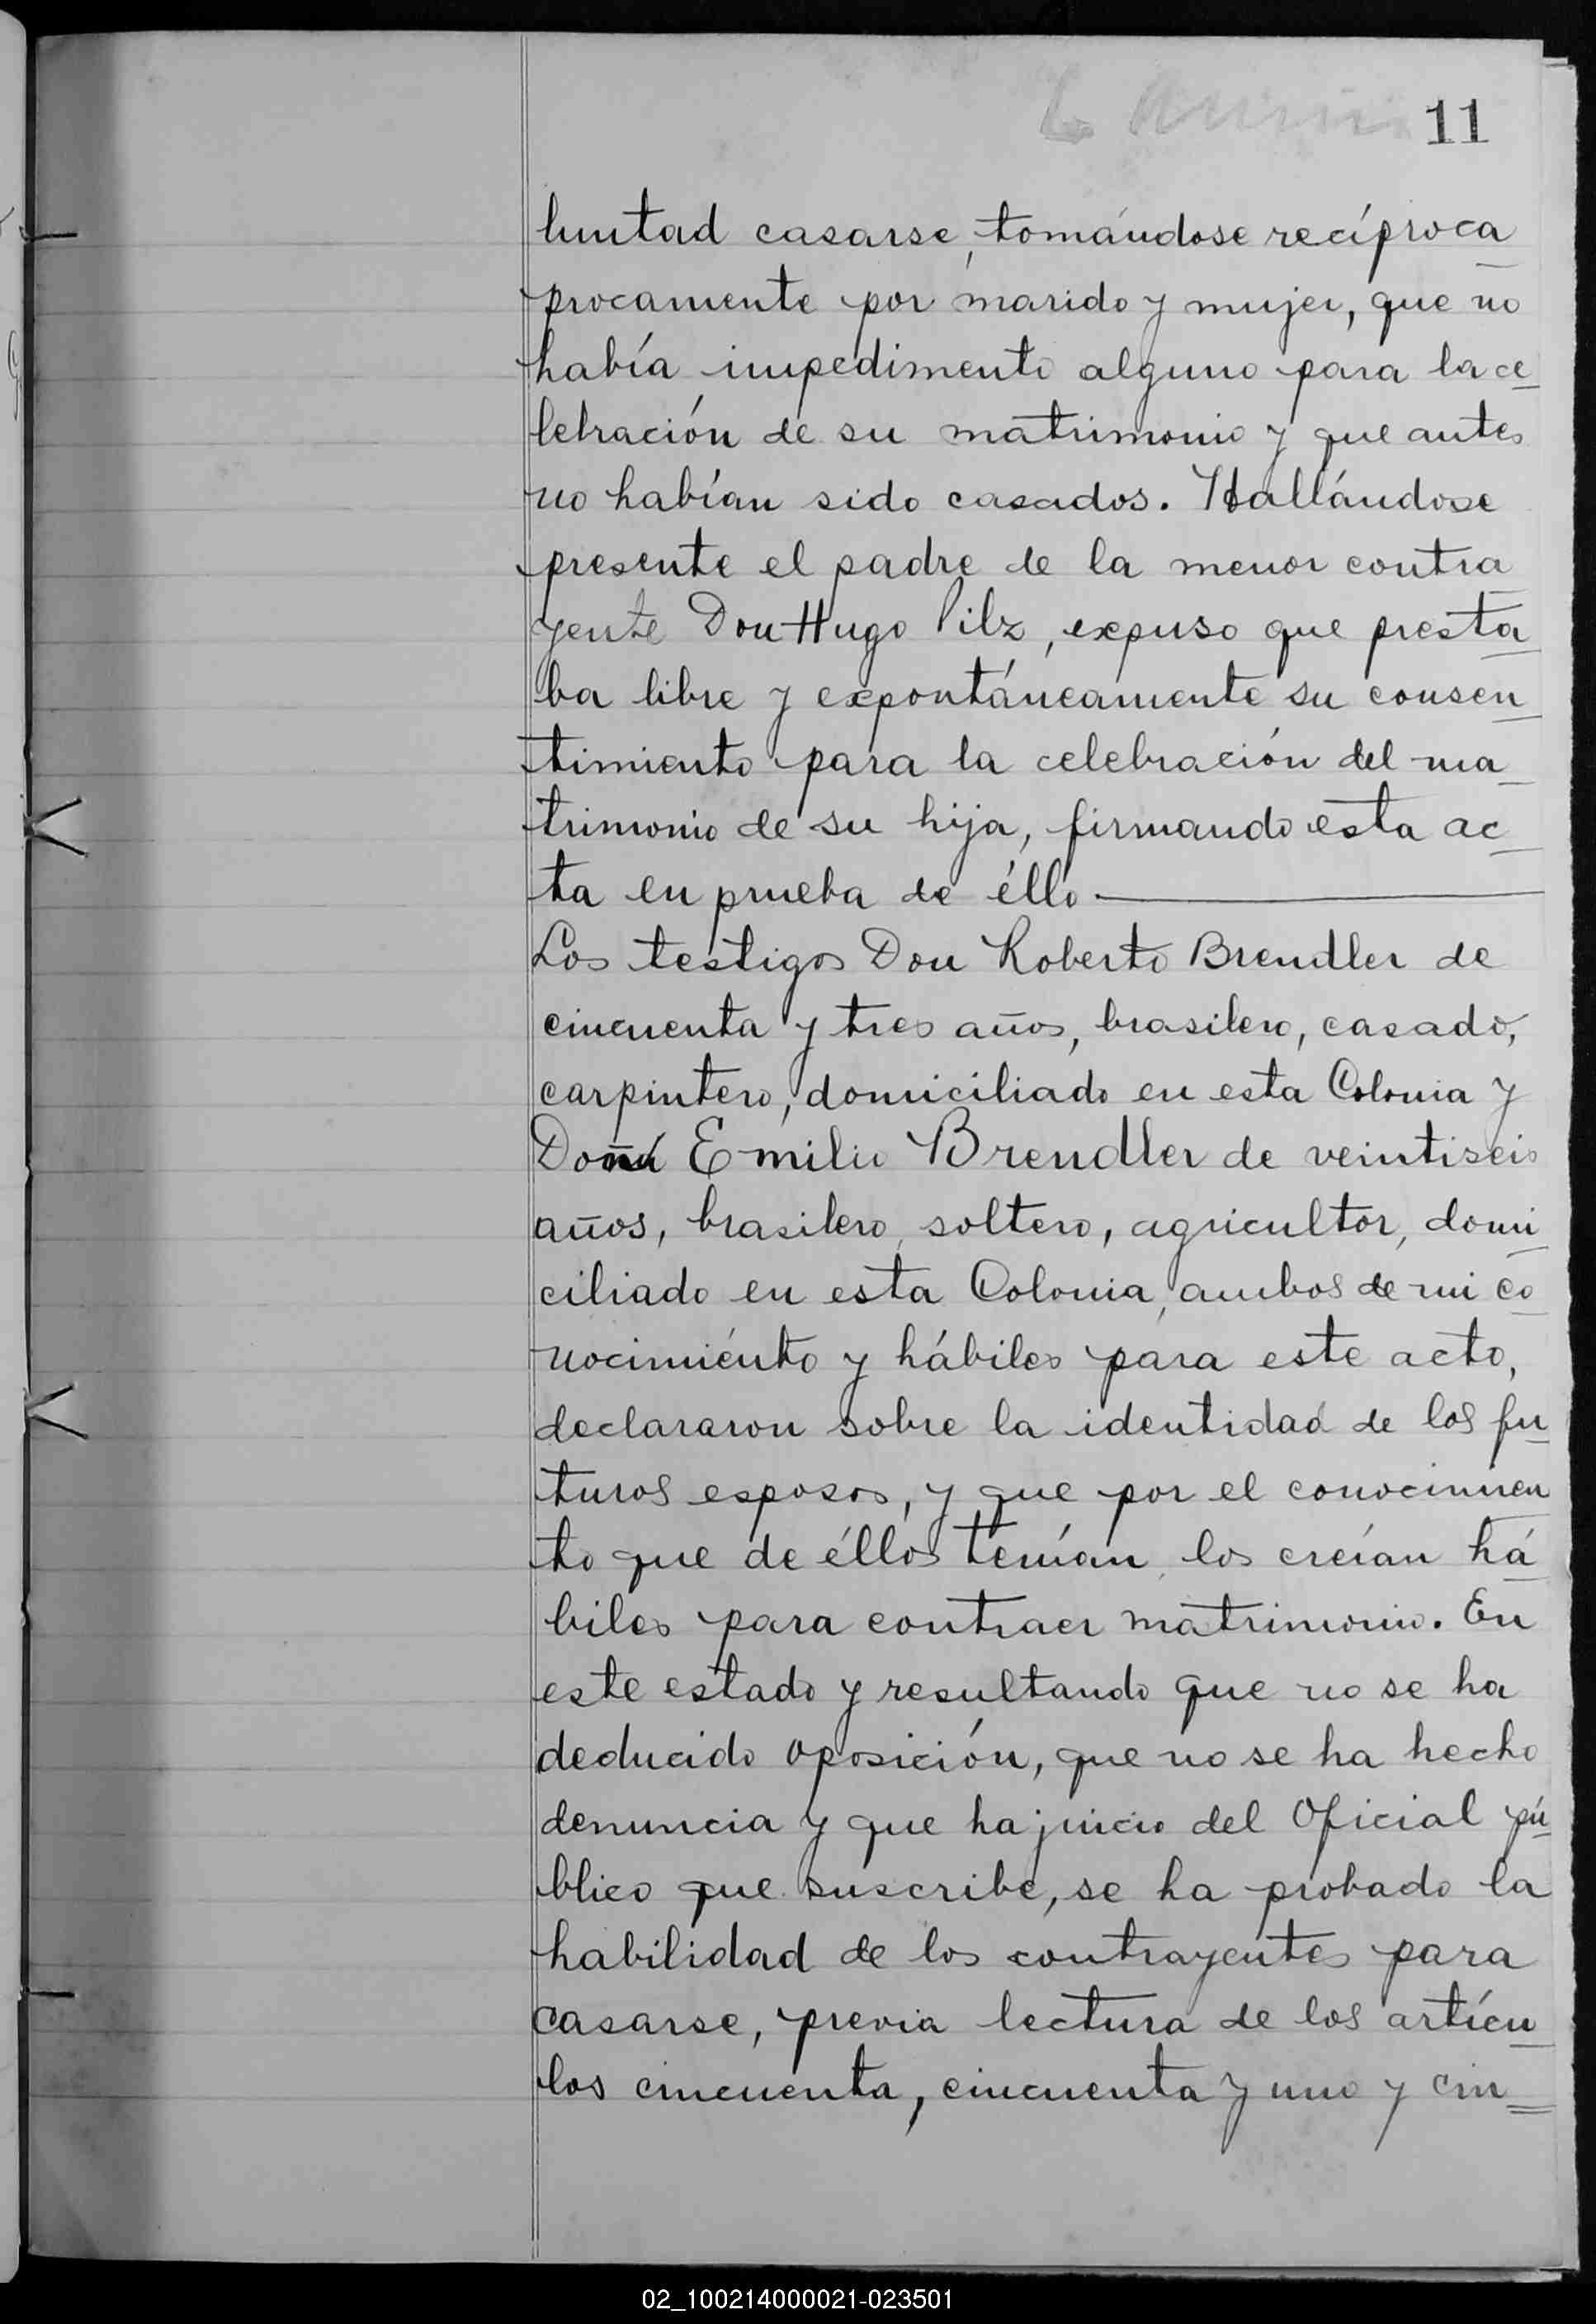 11
luntad casarse, tomándose recíproca
procamente por marido y mujer, que no
había impedimento alguno para la ce
lebración de su matrimonio y que antes
no habían sido casados. Hallándose
presente el padre de la menor contra
yente Don Hugo Pilz, expuso que presta
ba libre y expontáneamente su consen
timiento para la celebración del ma
trimonio de su hija, firmando esta ac
ta en prueba de éllo
Los testigos Don Roberto Brendler de
cincuenta y tres años, brasilero, casado,
carpintero, domiciliado en esta Colonia y
Emilio Brendler de veintiseis
años, brasilero, soltero, agricultor, domi
ciliado en esta Colonia, ambos de mi co
nocimiento y hábiles para este acto,
declararon sobre la identidad de los fu
turos esposos, y que por el conocimien
to que de éllos tenían, los creían há
biles para contraer matrimonio. En
este estado y resultando que no se ha
deducido oposición, que no se ha hecho
denuncia y que ha juicio del Oficial pú
blico que suscribe, se ha probado la
habilidad de los contrayentes para
casarse, previa lectura de los artícu
los cincuenta, cincuenta y uno y cin
02_100214000021-023501